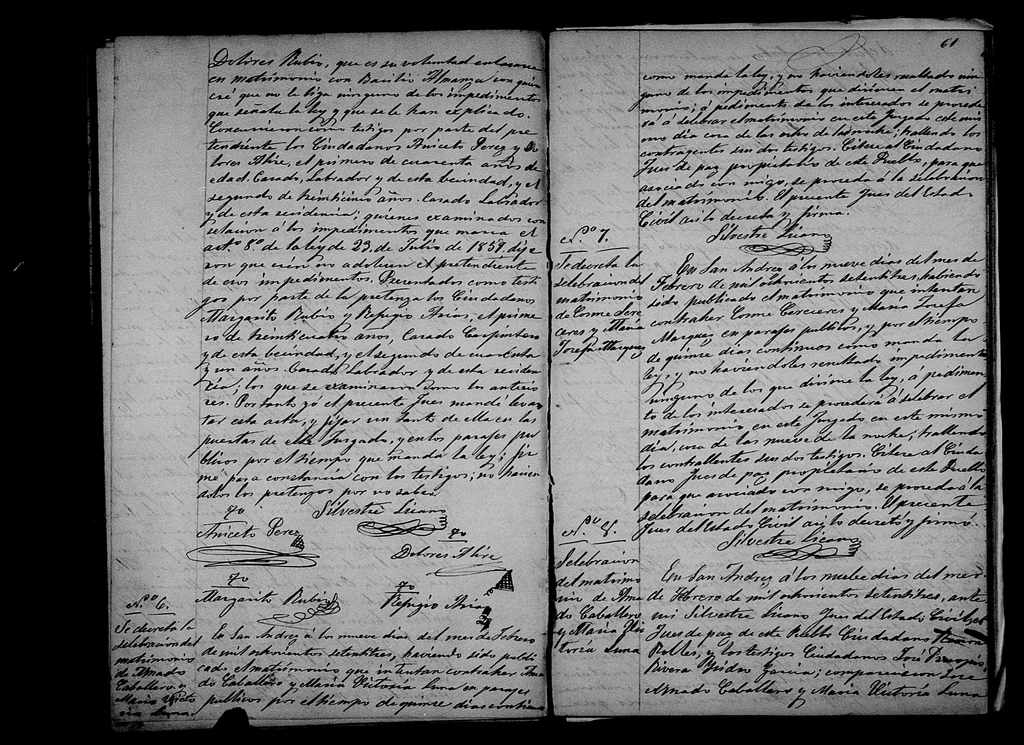 Dolores Rubio, que es su voluntad enlasarse
en matrimonio con Basilio Almanza con quien
cré que no le liga ninguno de los impedimentos
que señala la ley y que se le han esplicado.
Concurrieron como testigos por parte del pre-
tendiente los Ciudadanos Aniceto Perez y Do-
lores Alire, el primero de cuarenta años de
edad. Casado, Labrador y de esta becindad, y el
segundo de beinticinco años. Casado Labrador
y de esta recidencia; quienes examinados con
relacion á los impedimentos que marca el
artº 8º de la ley de 23 de Julio de 1859, dije-
ron que no el pretendiente
de esos impedimentos. Presentados como testi-
gos por parte de la pretenza los Ciudadanos
Margarito Rubio y Refugio Arias, el prime-
ro de beinticuatro años, Casado Carpintero
y de esta becindad, y el segundo de cuarenta
y un años. Casado Labrador y de esta reciden-
cia; los que se examinaron como los anterio-
res. Por tanto yó el presente Jues mandé levan-
tar esta acta, y fijar un tanto de ella en las
puertas de este Jusgado, y en los parajes pu-
blicos por el tiempo que manda la ley; fir-
mé para constancia con los testigos; no hacien-
dolos los pretenzos por no saber.
Silvestre Licano
Aniceto Perez
Dolores Alire
Margarito Rubio
Refugio Arias
N.º 6.
Se decreta la
selebracion del
matrimonio
de Amado
Caballero y
Maria Victo
ria Luna.
En San Andrez á los nueve dias del mes de Febrero
de mil ochosientos setentitres, haviendo sido publi-
cado el matrimonio que intentan contraher Ama-
do Caballero y Maria Victoria Luna en parajes
publicos por el tiempo de quinse dias continuos
61
como manda la ley, y no haviendoles resultado nin-
guno de los impedimentos que dirimen el matri-
monio; á pedimento de los interesados se procede-
rá á selebrar el matrimonio en este Jusgado este mis-
mo dia cosa de las ocho de la noche; trallendo los
contrayentes sus dos testigos. Citese al Ciudadano
Jues de paz propietario de este Pueblo, para que
asociado con migo, se proceda á la selebracion
del matrimonio. El presente Jues del Estado
Civil asi lo decreta y firma.
Silvestre Licano
N.º 7.
Se decreta la
selebracion del
matrimonio
de Cosme Ser-
ceres y Maria
Josefa Marquez
En San Andrez á los nueve dias del mes de
Febrero de mil ochosientos setentitres, habiendo
sido publicado el matrimonio que intentan
contraher Cosme Cerceres y Maria Josefa
Marquez en parajes publicos, y por el tiempo
de quinse dias continuos como manda la
ley, y no haviendoles resultado impedimento
ninguno de los que dirime la ley, á pedimen-
to de los interesados se procederá á selebrar el
matrimonio, en este Jusgado en este mismo
dia, cosa de las nueve de la noche; trallendo
los contrallentes sus dos testigos. Citese al Ciuda-
dano Jues de paz propietario de este Pueblo
para que asociado con migo, se proceda á la
selebracion del matrimonio. El presente
Jues del Estado Civil asi lo decretó y firmó.
Silvestre Licano
N.º 8.
Selebracion
del matrimo
nio de Ama
do Caballero
y Maria Vic
toria Luna
En San Andrez á los nuebe dias del mes
de Febrero de mil ochosientos setentitres, ante
mi Silvestre Licano Jues del Estado Civil, y el
Jues de paz de este Pueblo Ciudadano Ramon
Robles, y los testigos Ciudadanos José
Rivera Ysidro Garcia; comparecieron José
Amado Caballero y Maria Victoria Luna